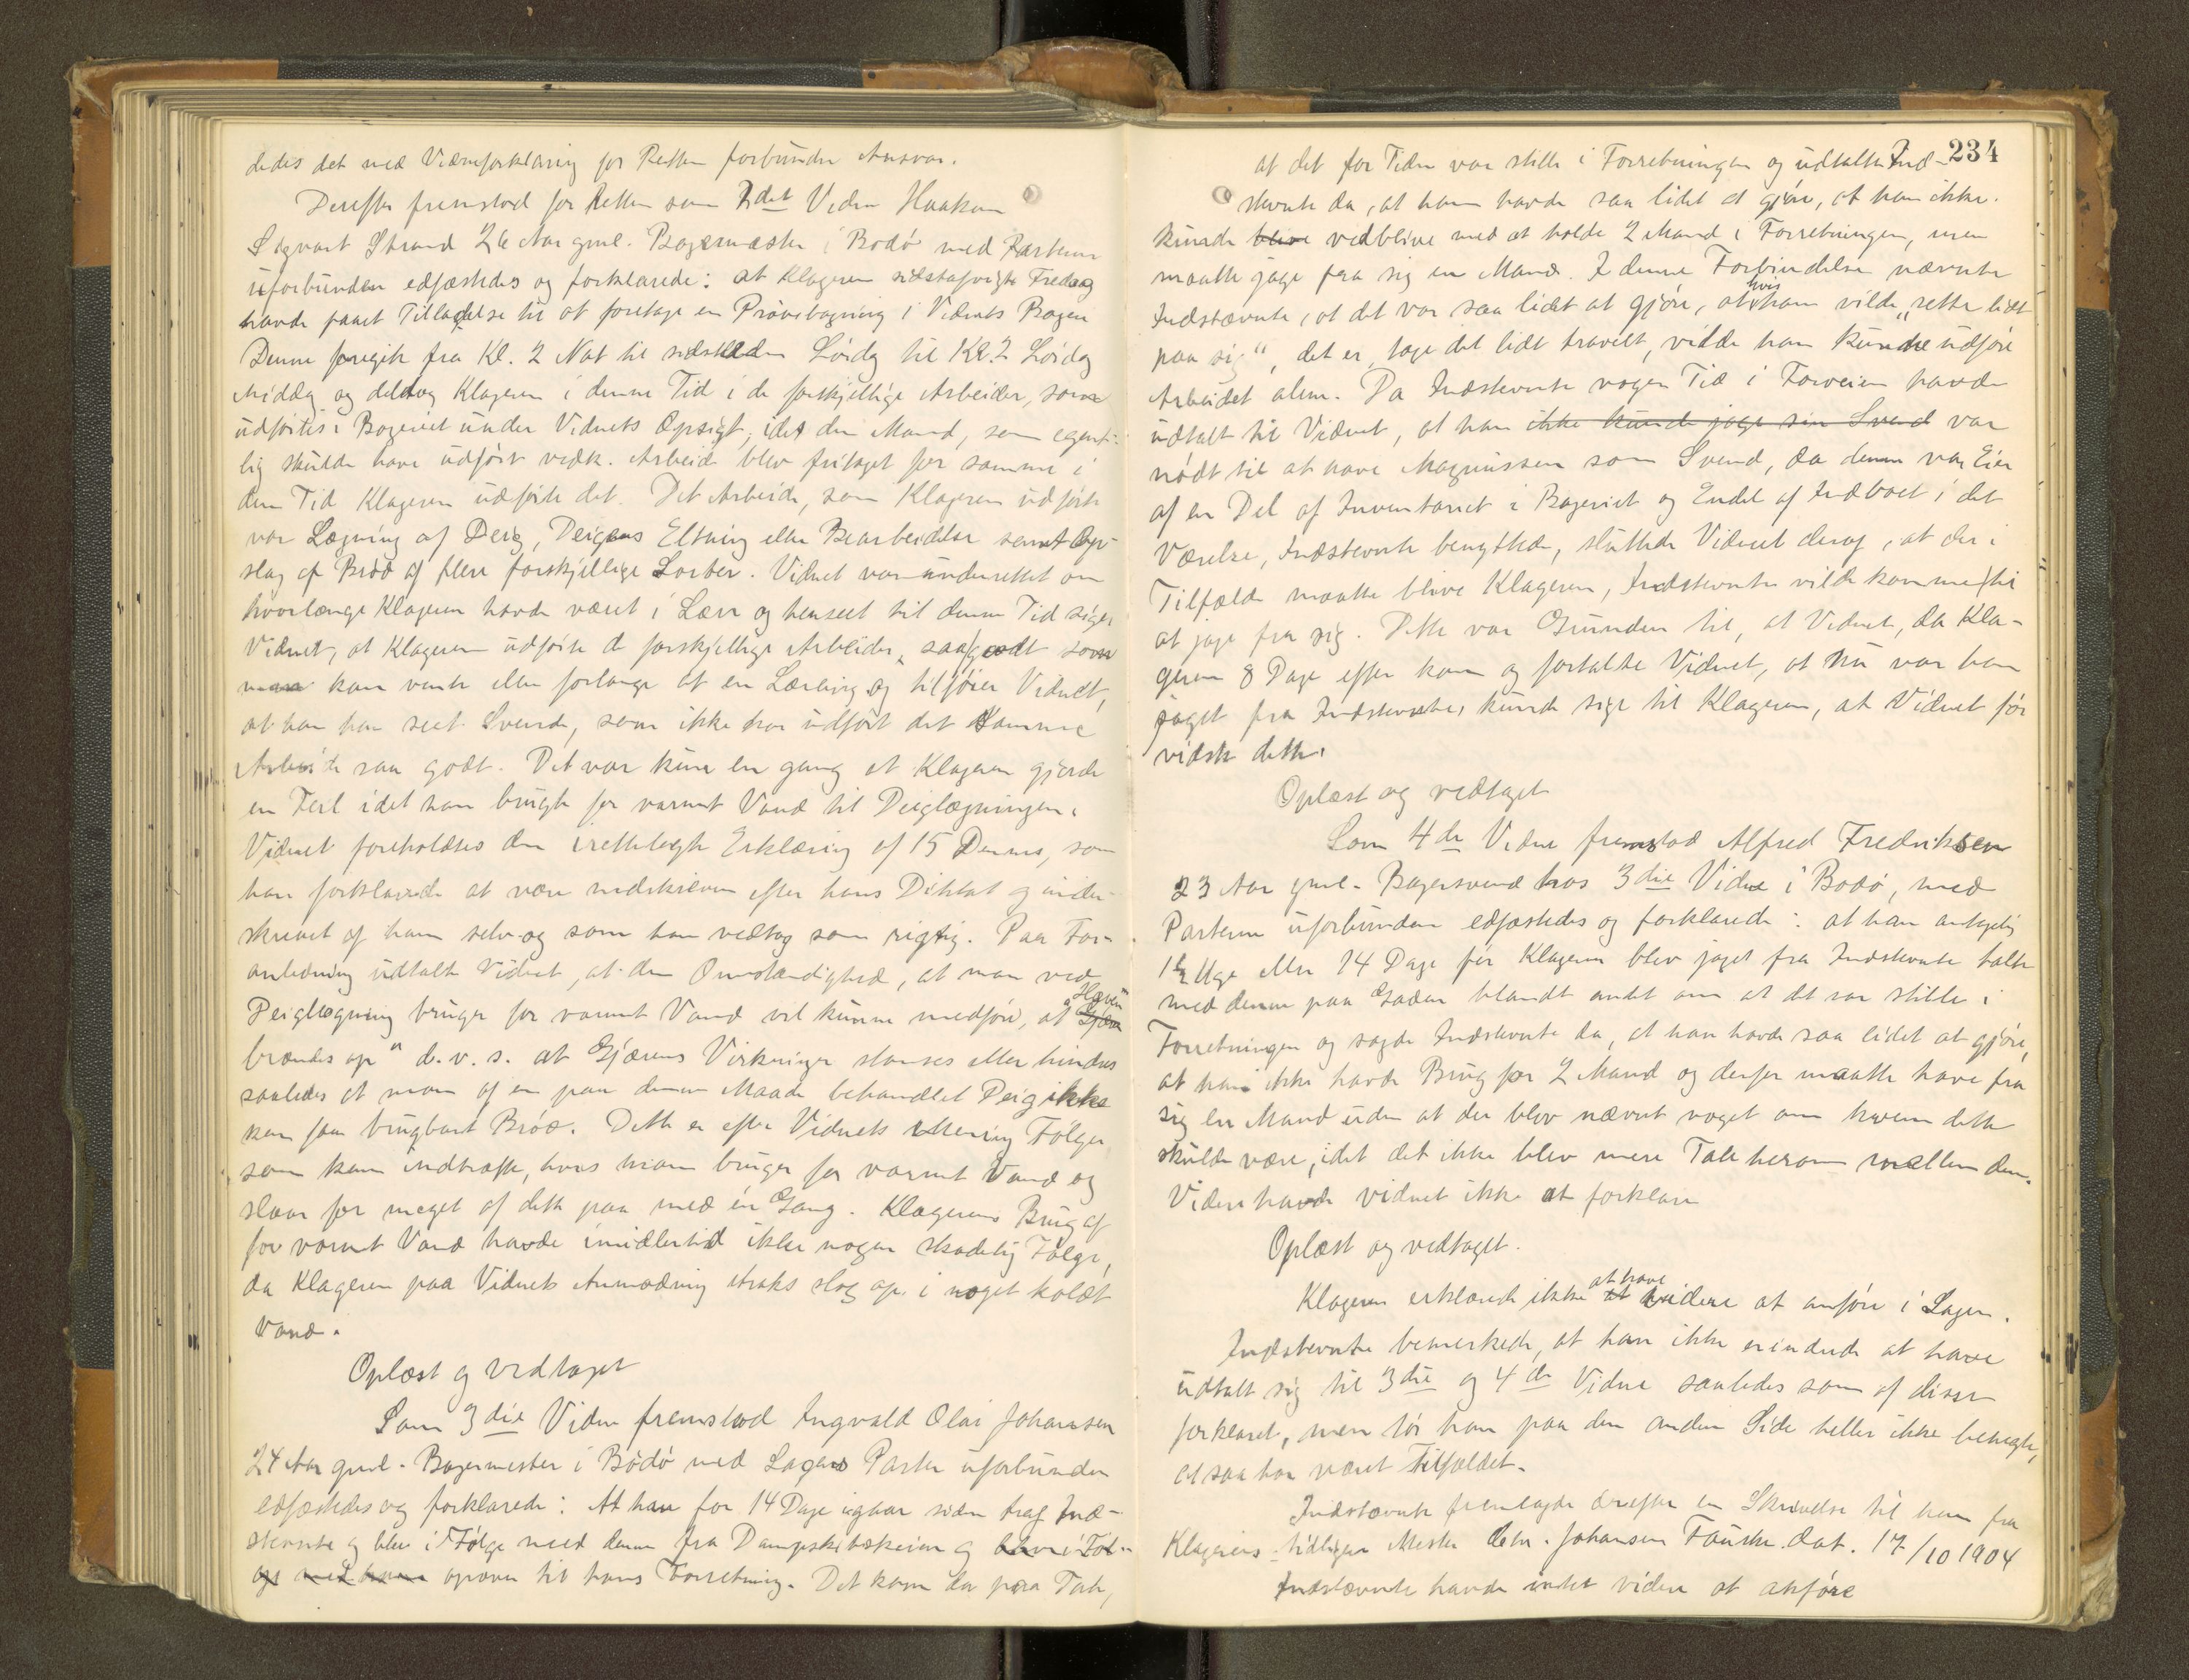 dedes det med Vidneforklaring for Retten forbundne Ansvar.
Derefter fremstod for Retten som 2det Vidne Haakon
Sigvart Strand 26 Aar gml. Bagermester i Bodø med Parterne
uforbunden edfæstedes og forklarede: at Klageren sidstafvigte Fredag
havde faaet Tilladelse til at foretage en Prøvebagning i Vidnets Bageri
Denne foregik fra Kl. 2 Nat til sidstleden Lørdag til Kl. 2 Lørdag
Middag og deltog Klageren i denne Tid i de forskjellige Arbeider, som
udførtes i Bageriet under Vidnets Opsigt, idet den Mand, som egent-
lig skulde have udført vedk. Arbeide blev fritaget for samme i
den Tid Klageren udførte det. Det Arbeide, som Klageren udførte
var Lægning af Deig, Deigens Eltning eller Bearbeidelse samt Op-
slag af Brød af flere forskjellige Sorter. Vidnet var underrettet om
hvorlænge Klageren havde været i Lære og henseet til denne Tid siger
Vidnet, at Klageren udførte de forskjellige Arbeider, saa godt som
man kan vente eller forlange af en Lærling og tilføier Vidnet,
at han har seet Svende, som ikke har udført det samme
Arbeide saa godt. Det var kun en gang at Klageren gjorde
en Feil idet han brugte for varmt Vand til Deiglægningen.
Vidnet foreholdtes den irettelagte Erklæring af 15 Dennes, som
han forklarede at være nedskreven efter hans Diktat og under-
skrevet af ham selv og som han vedtog som rigtig. Paa For-
anledning udtalte Vidnet, at den Omstændighed, at man ved
Deiglægning bruger for varmt Vand vil kunne medføre, at "Gjæren Hæven
brændes op" d.v.s. at Gjærens Virkninger stanses eller hindres
saaledes at man af en paa denne Maade behandlet Deig ikke
kan faa brugbart Brød. Dette er efter Vidnets Mening Følger,
som kan indtræffe, hvis man bruger for varmt Vand og
slaar for meget af dette paa med én Gang. Klagerens Brug af
for varmt Vand havde imidlertid ikke nogen skadelig Følge,
da Klageren paa Vidnets Anmodning straks slog op i noget koldt
Vand.
Oplæst og vedtaget
Som 3die Vidne fremstod Ingvald Olai Johansen
24 Aar gml. Bagermester i Bodø med Sagens Parter uforbunden
edfæstedes og forklarede: At han for 14 Dage igaar siden traf Ind-
stevnte og blev i Følge med denne fra Dampskibskaien og blev i Føl-
ge med ham opover til hans Forretning. Det kom da paa Tale,
234
at det for Tiden var stille i Forretningen og udtalte Ind-
stevnte da, at han havde saa lidet at gjøre, at han ikke
kunde blive vedblive med at holde 2 Mand i Forretningen, men
maatte jage fra sig en Mand. I denne Forbindelse nævnte
Indstævnte, at det var saa lidet at gjøre, at hvis han vilde "sette lidt
paa sig", det er, tage det lidt travelt, vilde han kunde udføre
Arbeidet alene. Da Indstevnte nogen Tid i Forveien havde
udtalt til Vidnet, at han ikke kunde jage sin Svend var
nødt til at have Magnussen som Svend, da denne var Eier
af en Del af Inventariet i Bageriet og Endel af Indboet i det
Værelse, Indstevnte benyttede, sluttede Vidnet deraf, at det i
Tilfælde maatte blive Klageren, Indstevnte vilde komme til
at jage fra sig. Dette var Grunden til, at Vidnet, da Kla-
geren 8 Dage efter kom og fortalte Vidnet, at nu var han
jaget fra Indstevnte, kunde sige til Klageren, at Vidnet før
vidste dette.
Oplæst og vedtaget
Som 4de Vidne fremstod Alfred Fredriksen
23 Aar gml. Bagersvend hos 3die Vidne i Bodø, med
Parterne uforbunden edfæstedes og forklarede: at han antagelig
1½ Uge eller 14 Dage før Klageren blev jaget fra Indstevnte talte
med denne paa Gaden blandt andet om at det var stille i
Forretningen og sagde Indstevnte da, at han havde saa lidet at gjøre,
at han ikke havde Brug for 2 Mand og derfor maatte have fra
sig en Mand uden at der blev nævnt noget om hvem dette
skulde være, idet det ikke blev mere Tale herom mellem dem.
Videre havde vidnet ikke at forklare
Oplæst og vedtaget.
Klageren erklærede ikke at at have videre at anføre i Sagen.
Indstevnte bemerkede, at han ikke erindrede at have
udtalt sig til 3die og 4de Vidne saaledes som af disse
forklaret, men tør han paa den anden Side heller ikke benegte,
at saa har været Tilfældet.
Indstævnte fremlagde derefter en Skrivelse til ham fra
Klagerens tidligere Mester Johansen Fauske dat. 17/10 1904
Indstævnte havde intet videre at anføre